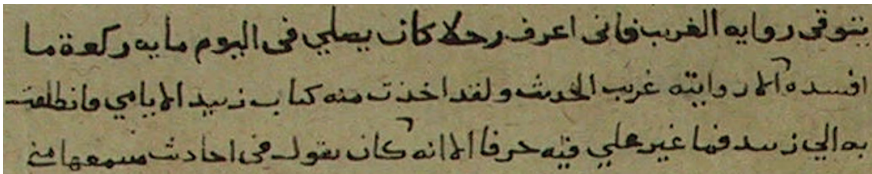 يتوقى روايه الغريب فانى اعرف رجلا كان يصلي فى اليوم مايه ركعة ما
افسده الا روايته غريب الحديث ولقد اخذت منه كتاب زبيد الايامي فانطلقت
به الي زبيد فما غير علي فيه حرفا الا انه كان يقول فى احاديث سمعها مني